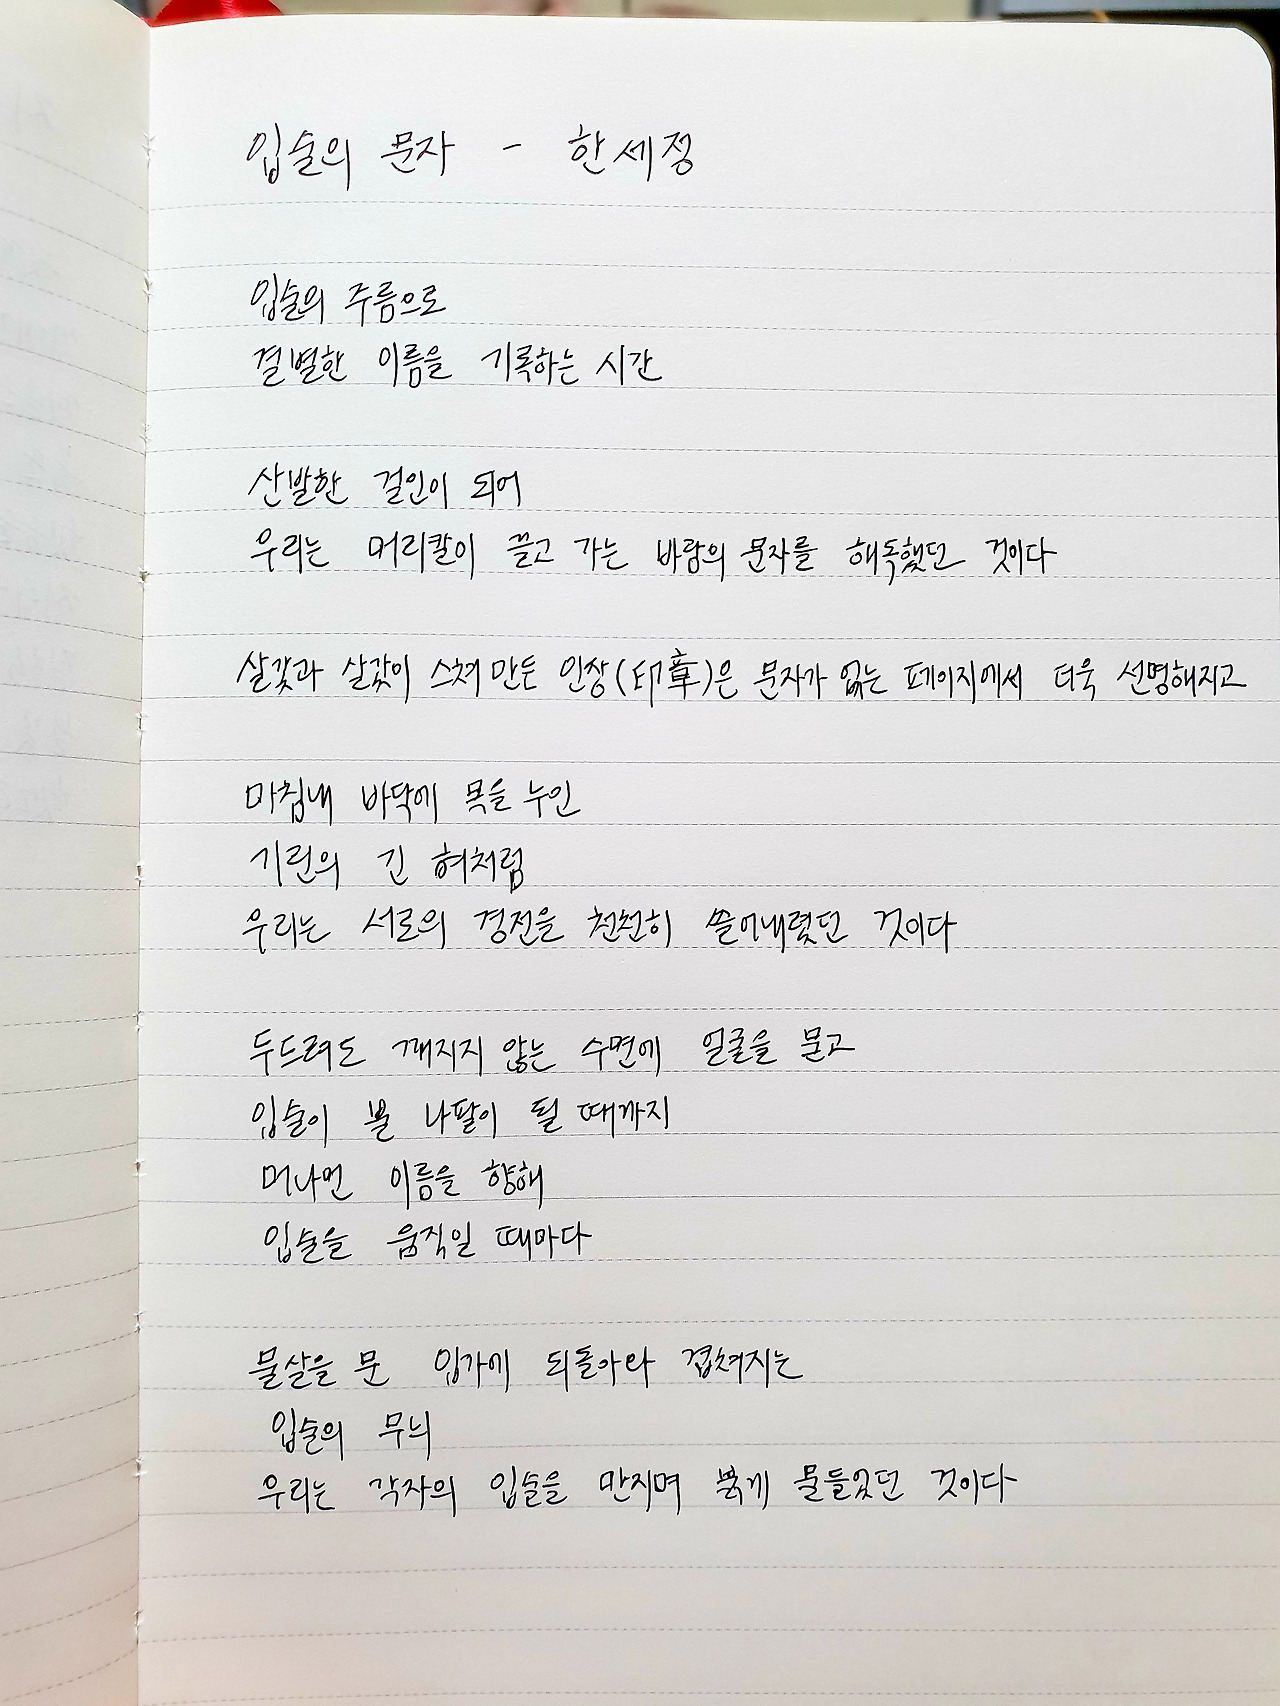 입술의 문자 - 한세정
입술의 주름으로
결별한 이름을 기록하는 시간
산발한 걸인이 되어
우리는 머리칼이 끌고 가는 바람의 문자를 해독했던 것이다
살갗과 살갗이 스쳐 만든 인장(印章)은 문자가 없는 페이지에서 더욱 선명해지고
마침내 바닥에 목을 누인
기린의 긴 혀처럼
우리는 서로의 경전을 천천히 쓸어내렸던 것이다
두드려도 깨지지 않는 수면에 얼굴을 묻고
입술이 뿔 나팔이 될 때까지
머나먼 이름을 향해
입술을 움직일 때마다
물살을 문 입가에 되돌아와 겹쳐지는
입술의 무늬
우리는 각자의 입술을 만지며 붉게 물들었던 것이다